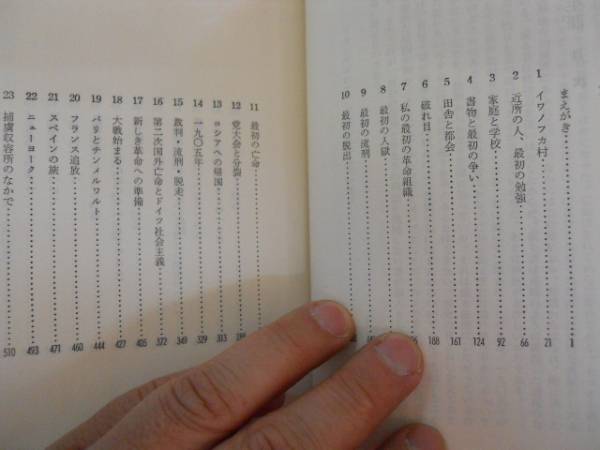 まえがき 1
1 イワノフカ村 21
2 近所の人、最初の勉強 66
3 家庭と学校 92
4 書物と最初の争い 124
5 田舎と都会 161
6 破れ目 188
7 私の最初の革命組織
8 最初の入獄
9 最初の流刑
10 最初の脱出
11 最初の亡命
12 党大会と分裂
13 ロシアへの帰国 313
14 一九〇五年 329
15 裁判・流刑・脱走 349
16 第二次国外亡命とドイツ社会主義 372
17 新しき革命への準備 405
18 大戦始まる 427
19 パリとチンメルワルト 444
20 フランス追放 460
21 スペインの旅 471
22 ニューヨーク 493
23 捕虜収容所のなかで 510